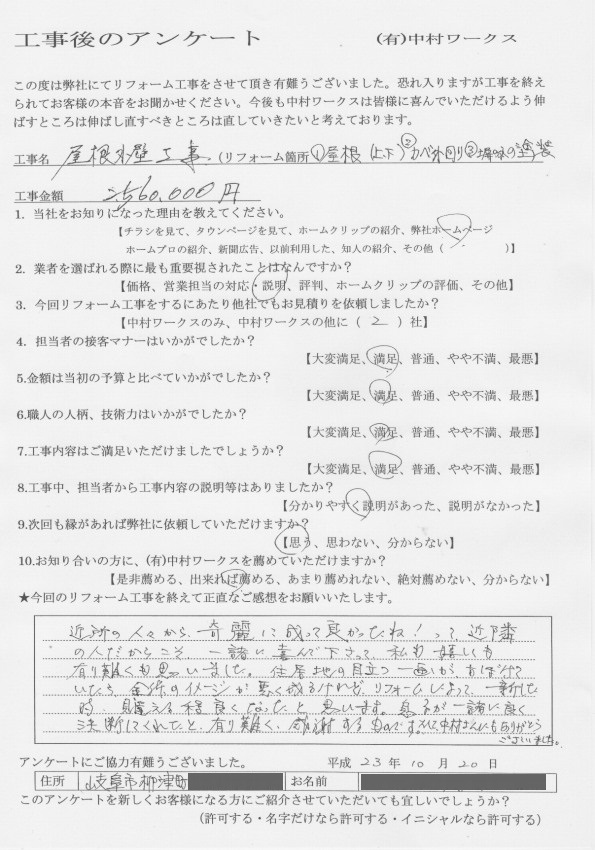 工事後のアンケート (有)中村ワークス
この度は弊社にてリフォーム工事をさせて頂き有難うございました。恐れ入りますが工事を終え
られてお客様の本音をお聞かせください。今後も中村ワークスは皆様に喜んでいただけるよう伸
ばすところは伸ばし直すべきところは直していきたいと考えております。
工事名 屋根外壁工事 (リフォーム箇所 ①屋根(上下)②カベ外回り③の塗装
工事金額 2560,000円
1. 当社をお知りになった理由を教えてください。
【チラシを見て、タウンページを見て、ホームクリップの紹介、弊社ホームページ
ホームプロの紹介、新聞広告、以前利用した、知人の紹介、その他( )】
2. 業者を選ばれる際に最も重要視されたことはなんですか?
【価格、営業担当の対応・説明、評判、ホームクリップの評価、その他】
3. 今回リフォーム工事をするにあたり他社でもお見積りを依頼しましたか?
【中村ワークスのみ、中村ワークスの他に( 2 )社】
4. 担当者の接客マナーはいかがでしたか?
【大変満足、満足、普通、やや不満、最悪】
5.金額は当初の予算と比べていかがでしたか?
【大変満足、満足、普通、やや不満、最悪】
6.職人の人柄、技術力はいかがでしたか?
【大変満足、満足、普通、やや不満、最悪】
7.工事内容はご満足いただけましたでしょうか?
【大変満足、満足、普通、やや不満、最悪】
8.工事中、担当者から工事内容の説明等はありましたか?
【分かりやすく説明があった、説明がなかった】
9.次回も縁があれば弊社に依頼していただけますか?
【思う、思わない、分からない】
10.お知り合いの方に、(有)中村ワークスを薦めていただけますか?
【是非薦める、出来れば薦める、あまり薦めれない、絶対薦めない、分からない】
★今回のリフォーム工事を終えて正直なご感想をお願いいたします。
近所の人々から、奇麗に成って良かったね!って、近隣
の人だからこそ、一諸に喜んで下さって、私も嬉しくも
有り難くも思いました。住居地の目立つ一画が、
いたら、全体のイメージが悪く成るけれど、リフォームによって、一新した
時、見違える程良くなったと思います。息子が一諸に良く
決断してくれたと、有り難く、感謝するものです。中村さんにもありがとう
ございました。
アンケートにご協力有難うございました。 平成 23 年 10 月 20 日
住所 岐阜市柳津町 お名前
このアンケートを新しくお客様になる方にご紹介させていただいても宜しいでしょうか?
(許可する・名字だけなら許可する・イニシャルなら許可する)